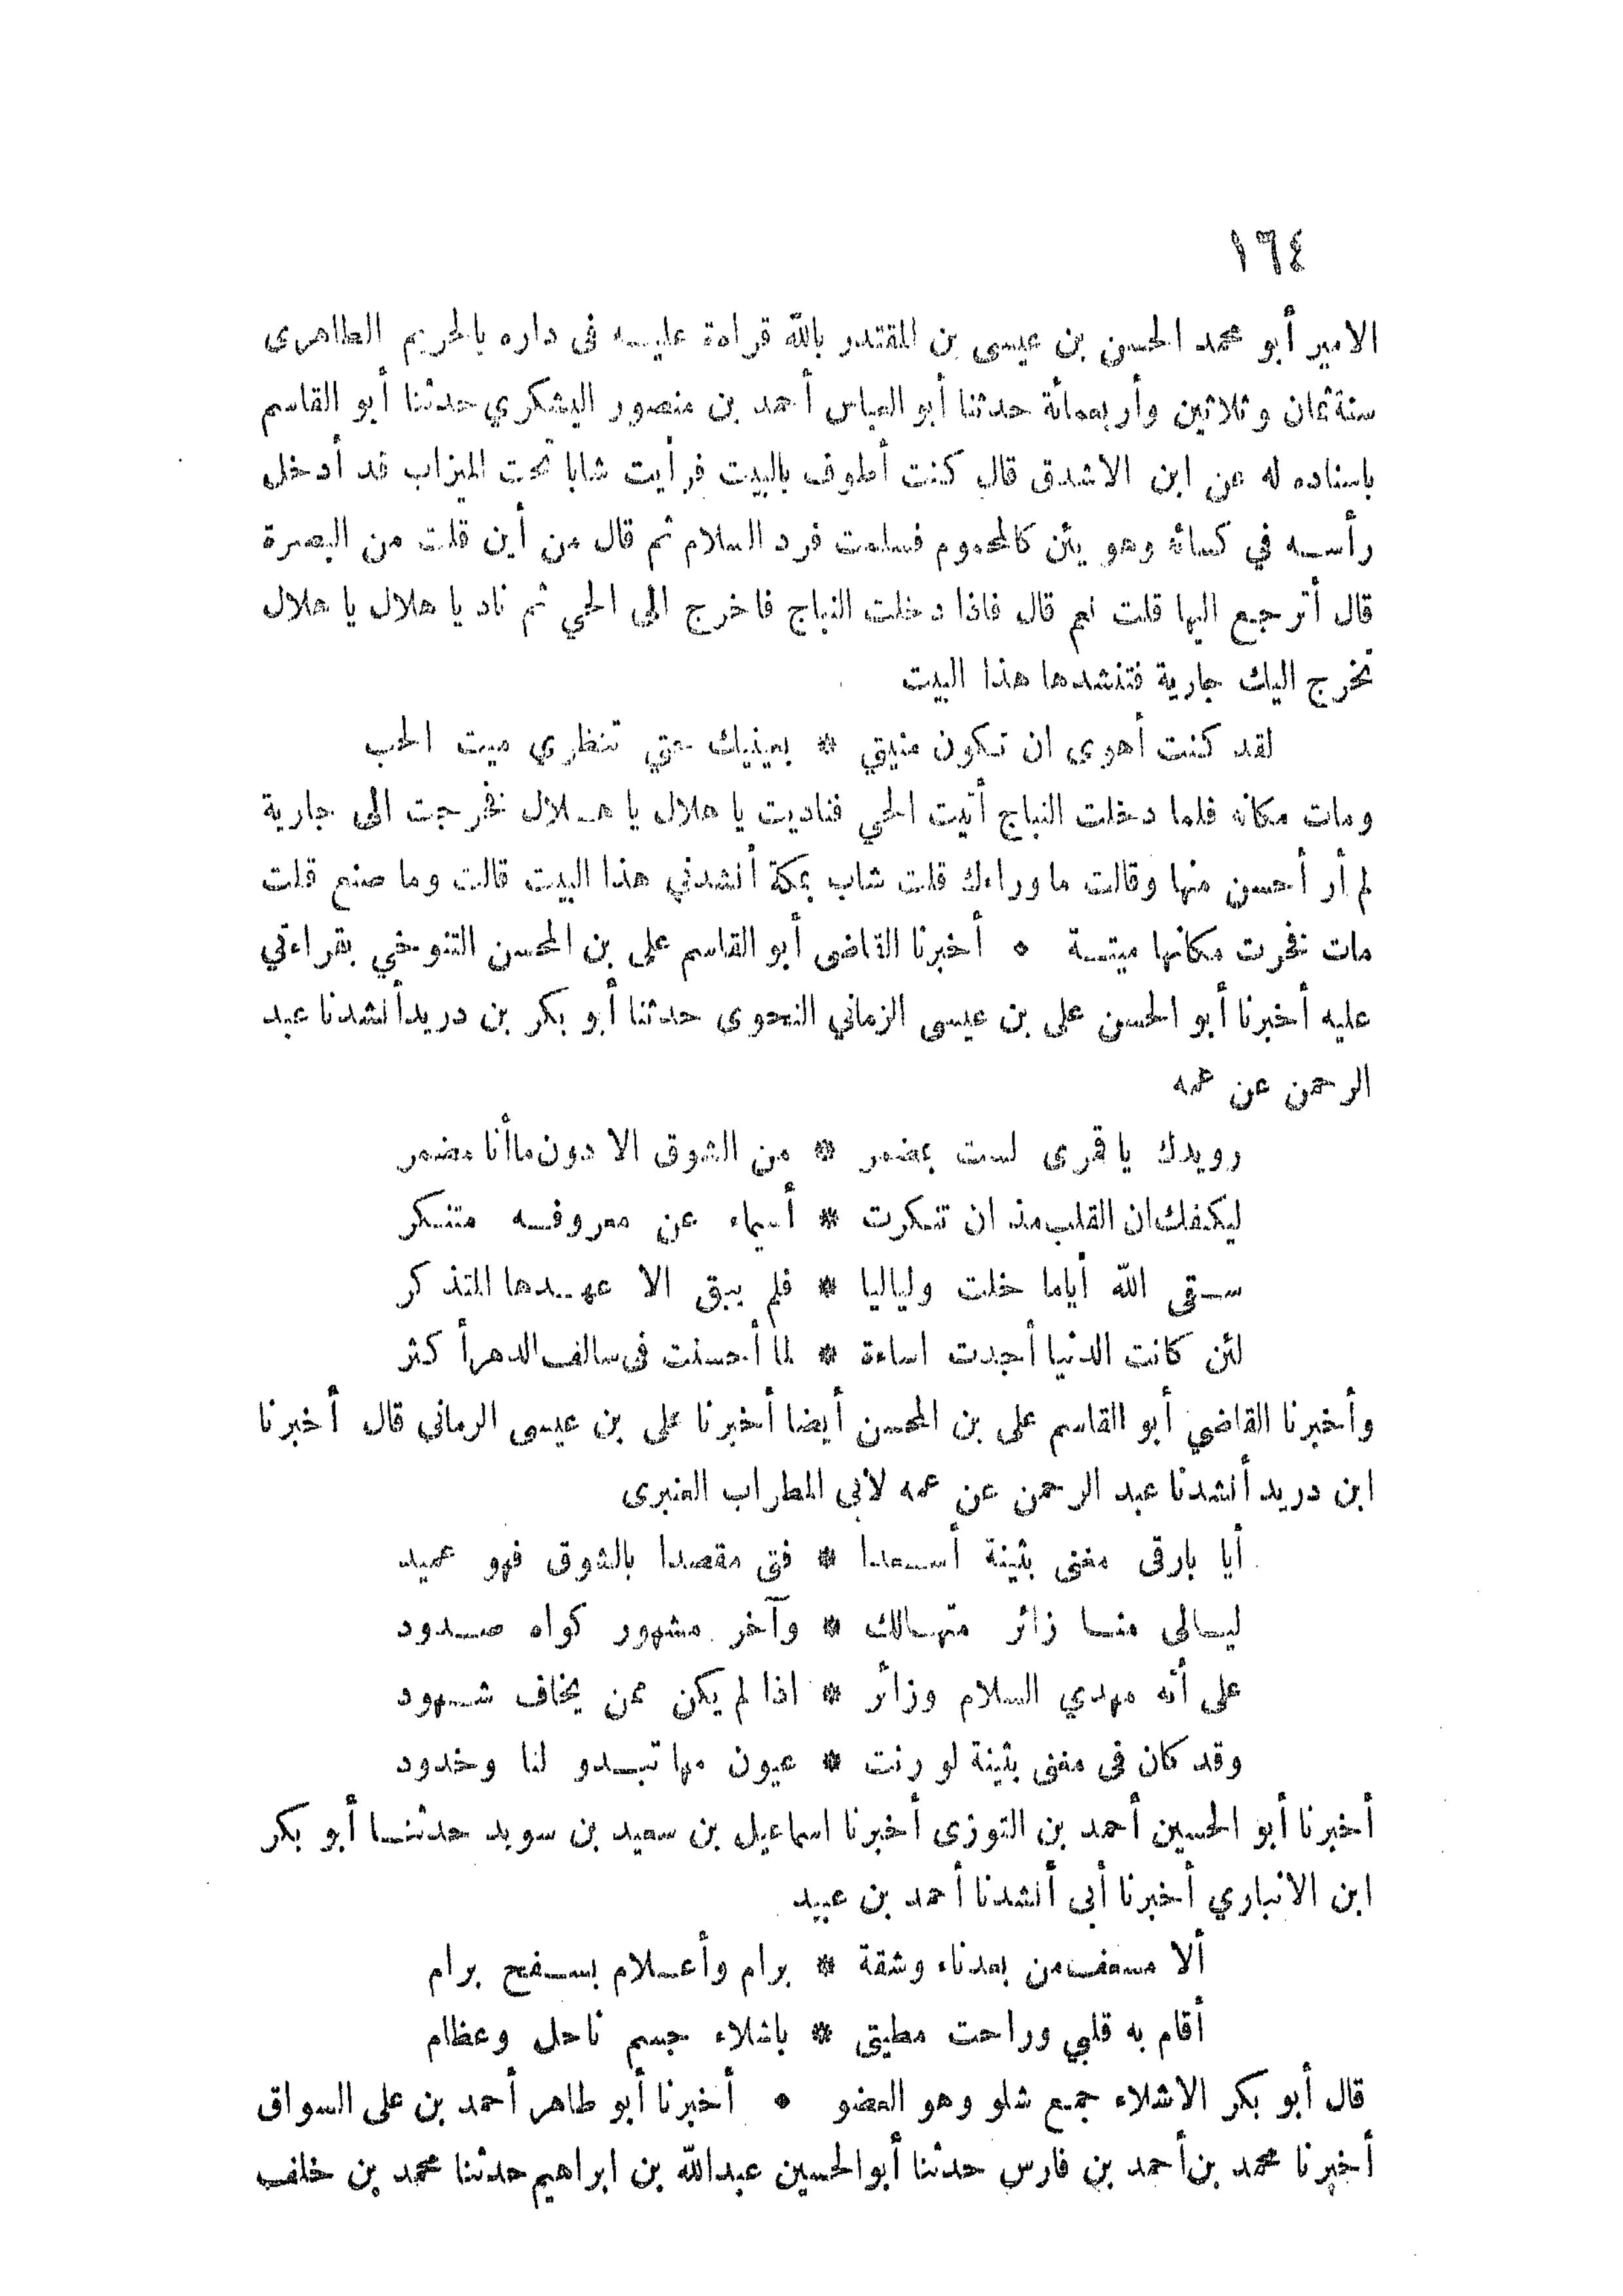 ١٦٤
الامير أبو محمد الحسن بن عيسى بن المقتدر بالله قراءة عليه فى داره بالحريم الطاهرى
سنة ثمان وثلاثين وأربعمائة حدثنا أبو العباس أحمد بن منصور اليشكري حدثنا أبو القاسم
باسناده له عن ابن الاشدق قال كنت أطوف بالبيت فرأيت شابا تحت الميزاب قد أدخل
رأسه في كسائه وهو يئن كالمحموم فسلمت فرد السلام ثم قال من أين قلت من البصرة
قال أترجع اليها قلت نعم قال فاذا دخلت النباج فاخرج الى الحي ثم ناد يا هلال يا هلال
تخرج اليك جارية فتنشدها هذا البيت
لقد كنت أهوى ان تكون منيتي * بعينيك حتي تنظري ميت الحب
ومات مكانه فلما دخلت النباج أتيت الحي فناديت يا هلال يا هلال فخرجت الى جارية
لم أر أحسن منها وقالت ما وراءك قلت شاب بمكة أنشدني هذا البيت قالت وما صنع قلت
مات فخرت مكانها ميتة * أخبرنا القاضى أبو القاسم على بن المحسن التنوخي بقراءتي
عليه أخبرنا أبو الحسن على بن عيسى الزماني النحوى حدثنا أبو بكر بن دريد أنشدنا عبد
الرحمن عن عمه
رويدك يا قمرى لست بمضمر * من الشوق الا دون ما أنا مضمر
ليكفك ان القلب مذ ان تنكرت * أسيماء عن معروفه متنكر
سقى الله أياما خلت ولياليا * فلم يبق الا عهدها المتذكر
لئن كانت الدنيا أجدت اساءة * لما أحسنت فى سالف الدهر أكثر
وأخبرنا القاضي أبو القاسم على بن المحسن أيضا أخبرنا على بن عيسى الرمانى قال أخبرنا
ابن دريد أنشدنا عبد الرحمن عن عمه لأبى المطراب العنبرى
أيا بارقى مغنى بثينة أسعدا * فتى مقصدا بالشوق فهو عميد
ليالى منا زائر متهالك * وآخر مشهور كواه صدود
على أنه مهدي السلام وزائر * اذا لم يكن ممن يخاف شهود
وقد كان فى مغنى بثينة لو رنت * عيون مها تبدو لنا وخدود
أخبرنا أبو الحسين أحمد بن التوزى أخبرنا اسماعيل بن سعيد بن سويد حدثنا أبو بكر
ابن الانباري أخبرنا أبى أنشدنا أحمد بن عبيد
ألا مسعف من بعدناء وشقة * برام وأعلام بسفح برام
أقام به قلبي وراحت مطيتى * باشلاء جسم ناحل وعظام
قال أبو بكر الاشلاء جمع شلو وهو العضو * أخبرنا أبو طاهر أحمد بن على السواق
أخبرنا محمد بن أحمد بن فارس حدثنا أبو الحسين عبدالله بن ابراهيم حدثنا محمد بن خلف